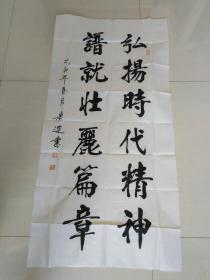 弘揚時代精神
譜就壯麗篇章